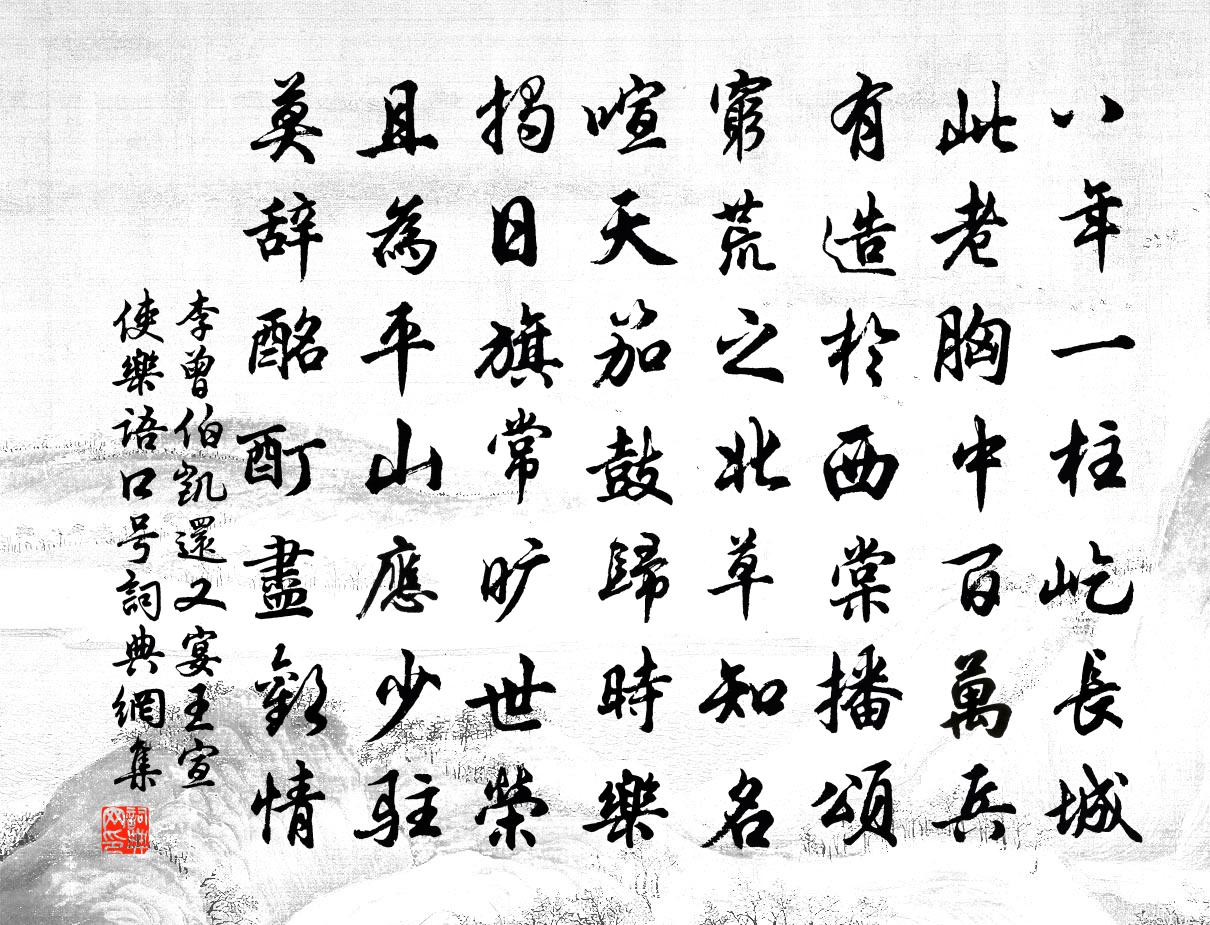 八年一柱屹長城
此老胸中百萬兵
有造於西棠播頌
窮荒之北草知名
喧天笳鼓歸時樂
揭日旗常曠世榮
且為平山應少駐
莫辞酩酊盡歡情
李曾伯凱還又宴王宣
使樂語口号詞典網集